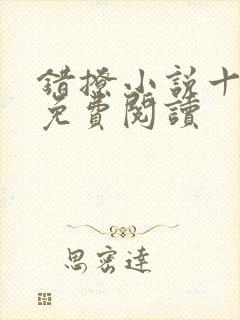 錯撩小說十
免費閱讀
思密達